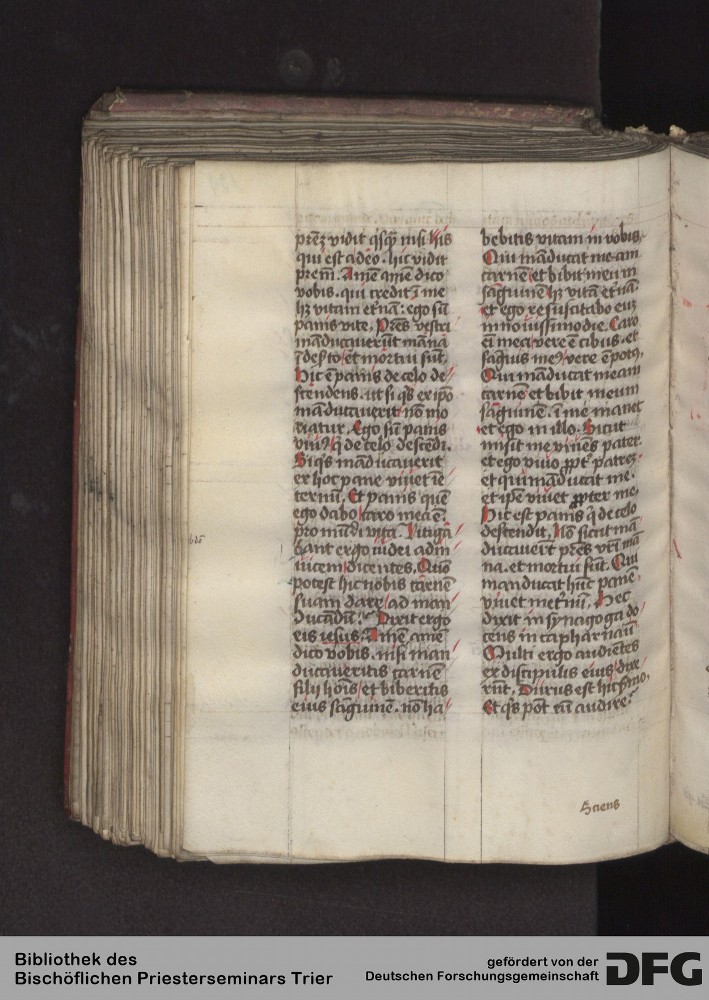 prez vidit qsq nisi his
qui est adeo. hic vidit
prem. Amē amē dico
vobis. qui credit ī me
hz vitam etnā: ego sū
panis vite. Pres vestri
māducauerūt māna
ī desto et mortui sūt.
Hic ē panis de celo de
scendens. ut si qs ex ipo
māducauerit nō mo
riatur. Ego sū panis
viuꝰ q de celo descēdi.
Siqs māducauerit
ex hoc pane viuet ī e
ternū. Et panis quē
ego dabo caro mea ē.
pro mūdi vita. Litiga
bant ergo iudei adin
uicem dicentes. Quō
potest hic nobis carnē
suam dare ad man
ducādū. Dixit ergo
eis iesus. Amē amē
dico vobis. nisi man
ducaueritis carnē
filij hoīs et biberitis
eius sāguinē. nō ha
bebitis vitam in vobis.
Qui māducat meam
carnē et bibit meum
sāguinē hz vitā etnā.
et ego resuscitabo eū
in nouissimo die. Caro
em mea vere ē cibus. et
sāguis meꝰ vere ē potꝰ.
Qui māducat meam
carnē et bibit meum
sāguinē. ī me manet
et ego in illo. Sicut
misit me viuēs pater.
et ego viuo ppt patrez.
et qui māducat me.
et ipē viuet ppter me.
Hic est panis q de celo
descendit. Nō sicut mā
ducauerūt pres vrī mā
na. et mortui sūt. Qui
manducat hūc panē.
viuet metnū. Hec
dixit in synagoga do
cens in capharnaū
Multi ergo audiētes
ex discipulis eius dixe
rūt. Durus est hic smo.
Et qs pōt eū audire.
Sciens
Bibliothek des
Bischöflichen Priesterseminars Trier
gefördert von der
Deutschen Forschungsgemeinschaft
DFG